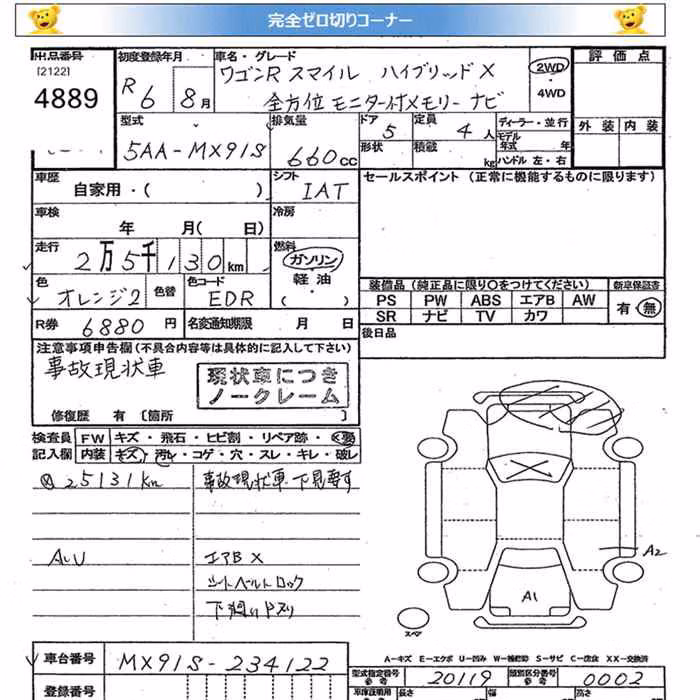 完全ゼロ切りコーナー
出品番号
[2122]
4889
初度登録年月
R 6 8月
車名・グレード
ワゴンR スマイル ハイブリッド X
全方位モニター付メモリーナビ
2WD
4WD
評価点
外装 内装
型式
5AA-MX91S
排気量
660cc
ドア 5
形状
定員 4人
積載 kg
ディーラー・並行
モデル年式 年
ハンドル 左・右
車歴
自家用・( )
シフト
IAT
セールスポイント (正常に機能するものに限ります)
車検
年 月( 日)
冷房
走行
2万5千130km
燃料
ガソリン
軽油
( )
色
オレンジ2
色替
色コード
EDR
装備品 (純正品に限り○をつけてください)
新車保証書
PS PW ABS エアB AW
SR ナビ TV カワ
有・無
R券 6880円
名変通知期限 月 日
後日品
注意事項申告欄 (不具合内容等は具体的に記入して下さい)
事故現状車
現状車につき
ノークレーム
修復歴 有 [箇所 ]
検査員
記入欄
FW キズ・飛石・ヒビ割・リペア跡・
内装 キズ・汚れ・コゲ・穴・スレ・キレ・破レ
25131km
事故現状車 下見要す
AUU
エアB X
シートベルトロック
下廻りサビ
A2
A1
スペア
A-キズ E-エクボ U-凹み W-補修跡 S-サビ C-腐食 XX-交換済
車台番号
MX91S-234122
登録番号
型式指定番号
参考
20119
類別区分番号
参考
0002
車庫証明用
参考
長さ
幅
高さ